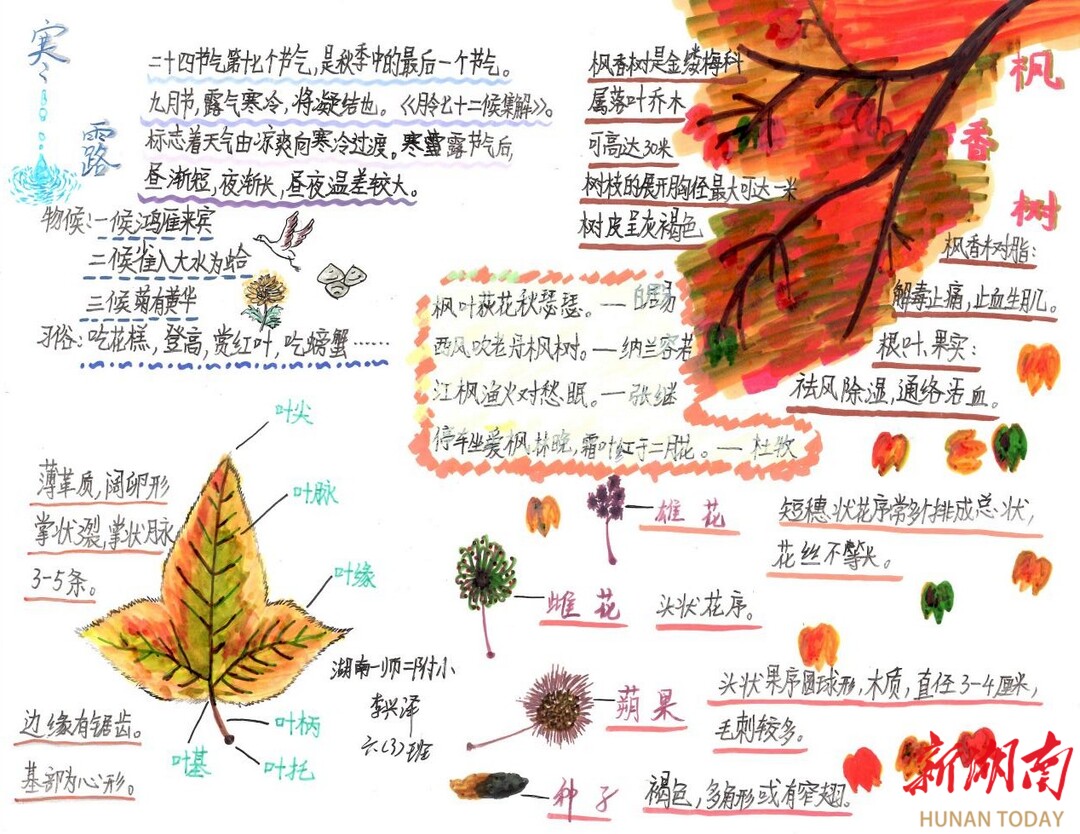 寒露
二十四节气第十七个节气,是秋季中的最后一个节气。
九月节,露气寒冷,将凝结也。《月令七十二候集解》。
标志着天气由凉爽向寒冷过渡。寒露节气后,
昼渐短,夜渐长,昼夜温差较大。
物候:一候鸿雁来宾
二候雀入大水为蛤
三候菊有黄华
习俗:吃花糕,登高,赏红叶,吃螃蟹……
枫香树
枫香树是金缕梅科
属落叶乔木
可高达30米
树枝的展开胸径最大可达一米
树皮呈灰褐色
枫香树脂:
解毒止痛,止血生肌。
根、叶、果实:
祛风除湿,通络活血。
枫叶荻花秋瑟瑟。—白居易
西风吹老丹枫树。—纳兰容若
江枫渔火对愁眠。—张继
停车坐爱枫林晚,霜叶红于二月花。—杜牧
叶尖
叶脉
叶缘
叶柄
叶托
叶基
薄革质,阔卵形
掌状3裂,掌状脉
3-5条。
边缘有锯齿。
基部为心形。
湖南一师二附小
李兴泽
六(3)班
雄花
短穗状花序常多个排成总状,
花丝不等长。
雌花
头状花序。
蒴果
头状果序圆球形,木质,直径3-4厘米,
毛刺较多。
种子
褐色,多角形或有窄翅。
新湖南
HUNAN TODAY